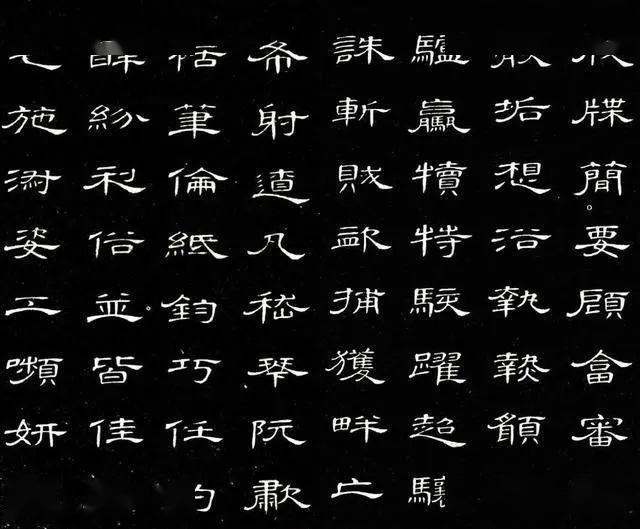 牒簡。要顧畣審
垢想浴執熱願
驢驘犢特駭躍超驤
誅斬賊捕獲畔亡
布射遼凡嵇琴阮歗
恬筆倫紙鈞巧任
紛利俗並。皆佳
施淑姿工嚬妍